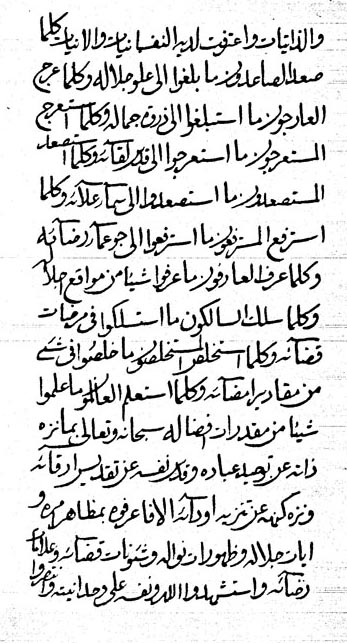 والذاتيات واعترفت لديه النفسانيات والانيات كلما
صعد الصاعدون ما بلغوا الى علو جلاله وكلما عرج
العارجون ما استبلغوا الى ذروة جماله وكلما استعرج
المستعرجون ما استعرجوا الى قدر لقائه وكلما استصعد
المستصعدون ما استصعدوا الى سماء علائه وكلما
استرفع المسترفعون ما استرفعوا الى جو عماء رضائه
وكلما عرف العارفون ما عرفوا شيئا من مواقع اجلاله
وكلما سلك السالكون ما استسلكوا في مرضات
قضائه وكلما استخلص المستخلصون ما خلصوا في شئ
من مقادير امضائه وكلما استعلم العالمون ما علموا
شيئا من مقدرات افضاله سبحانه وتعالى بما نزه
ذاته عن توحيد عباده وقدس نفسه عن تقديس ارقائه
ونزه كنهه عن تنزيه اودائه الا فاعرفوه بمظاهر
ايات جلاله وظهورات نواله وشئونات قضائه وعلامات
رضائه واستشهدوا الله ربه على وحدانيته